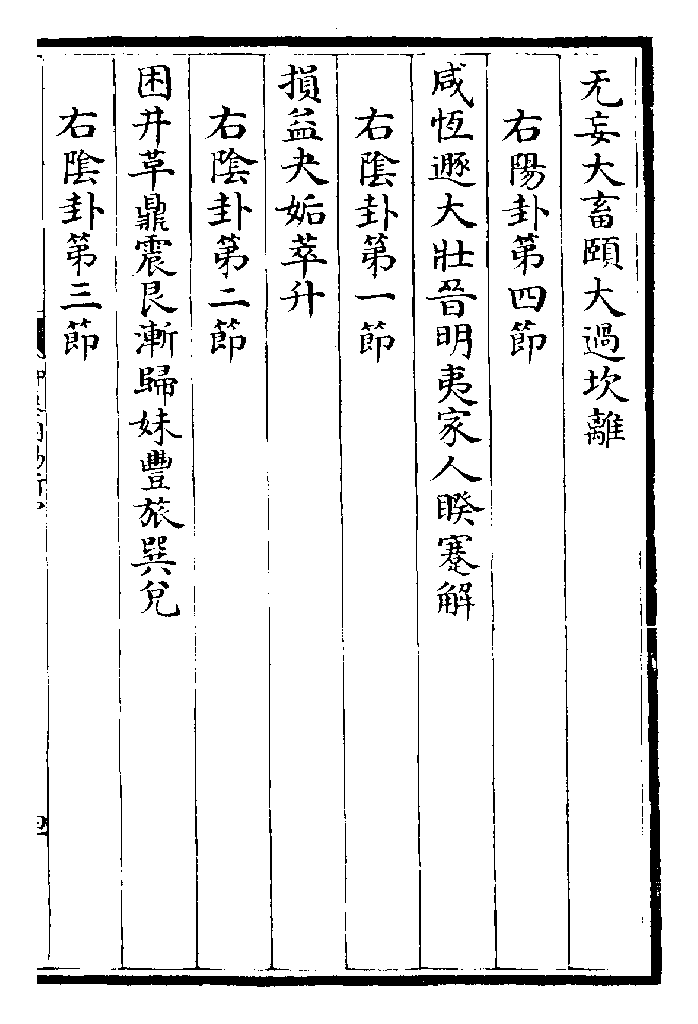 无妄大畜頤大過坎離
右陽卦第四節
咸恆遯大壯晉明夷家人睽蹇解
右陰卦第一節
損益夬姤萃升
右陰卦第二節
困井革鼎震艮漸歸妹豐旅巽兌
右陰卦第三節